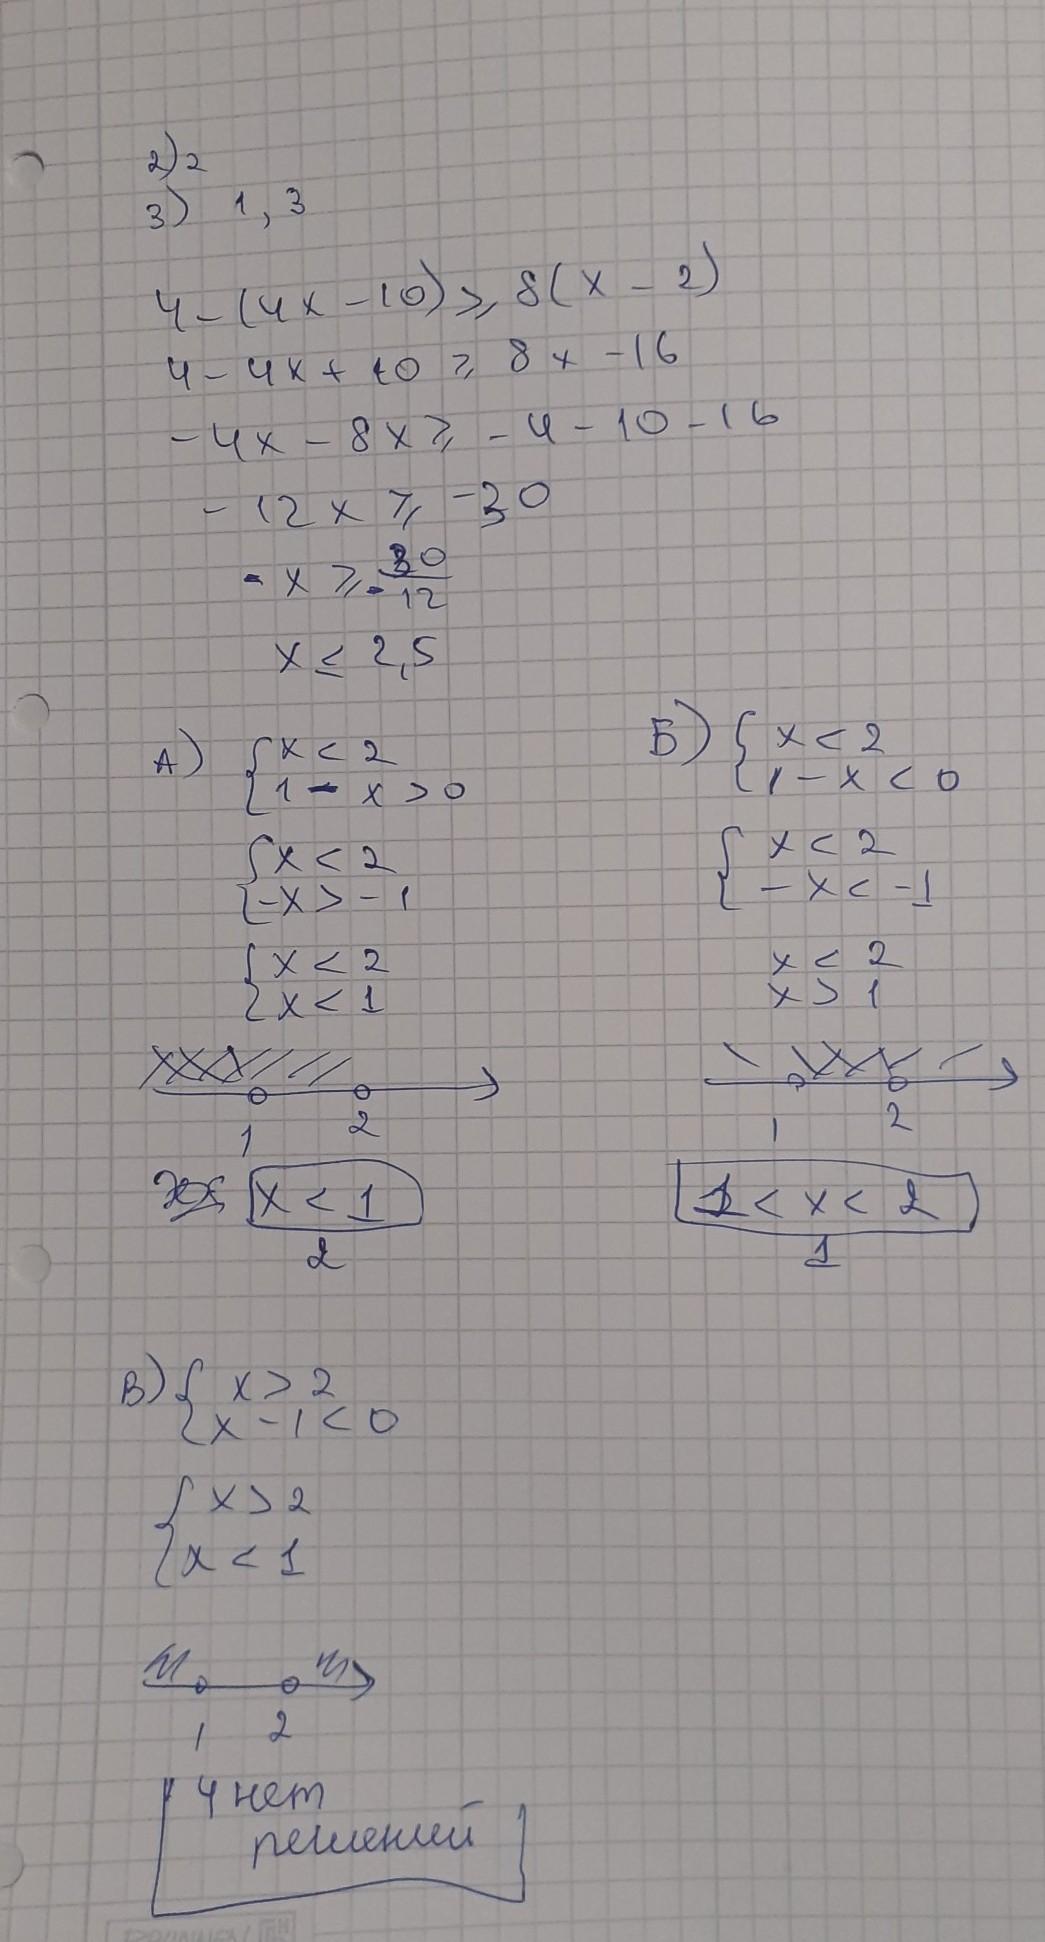 2) 2
3) 1, 3
4 - (4x - 10) ≥ 8(x - 2)
4 - 4x + 10 ≥ 8x - 16
-4x - 8x ≥ -4 - 10 - 16
-12x ≥ -30
-x ≥ -30/12
x ≤ 2,5
А) { x < 2
1 - x > 0
{ x < 2
-x > -1
{ x < 2
x < 1
1 2
x < 1
2
Б) { x < 2
1 - x < 0
{ x < 2
-x < -1
x < 2
x > 1
1 2
1 < x < 2
1
В) { x > 2
x - 1 < 0
{ x > 2
x < 1
1 2
4 нет
решений